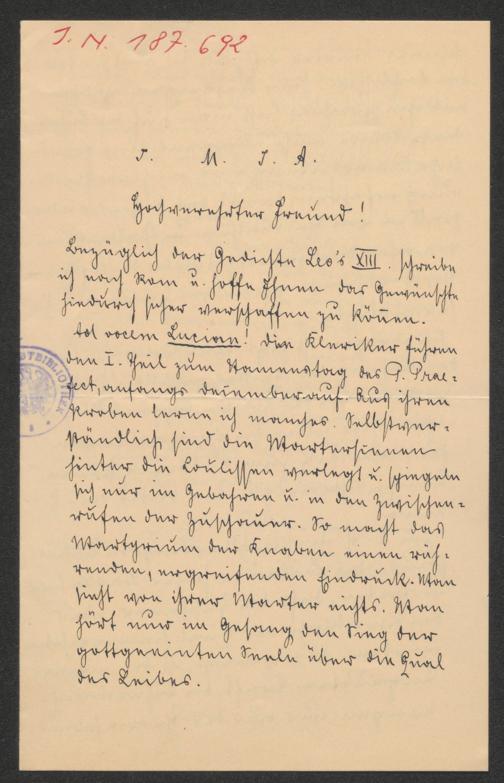 J. N. 187.692
J. M. J. A.
Hochverehrter Freund!
Bezüglich der Gedichte Leo's XIII. schreibe
ich nach Rom u. hoffe Ihnen das Gewünschte
hiedurch sicher verschaffen zu können.
Lucian! Die Kleriker führen
den I. Theil zum Namenstag des P. Prae-
fect, anfangs dezember auf. Aus ihren
Proben lerne ich manches. Selbstver-
ständlich sind die Marterscenen
hinter die Coulissen verlegt u. spiegeln
sich nur im Gebahren u. in den Zwischen-
rufen der Zuschauer. So macht das
Martyrium der Knaben einen rüh-
renden, ergreifenden Eindruck. Man
sieht von ihrer Marter nichts. Man
hört nur im Gesang den Sieg der
gottgeeinten Seele über die Qual
des Leibes.